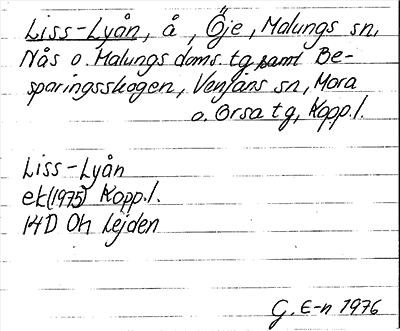 Liss-Lyån, å, Öje, Malungs sn,
Nås o. Malungs doms. tg samt Be-
sparingsskogen, Venjans sn, Mora
o. Orsa tg, Kopp.l.
Liss-Lyån
ek(1975) Kopp.l.
14D Oh Lejden
G. E-n 1976